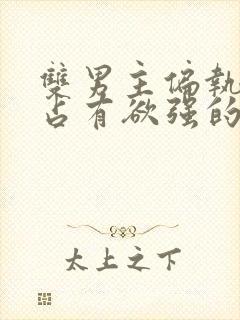 雙男主偏執
占有欲强的
太上之下